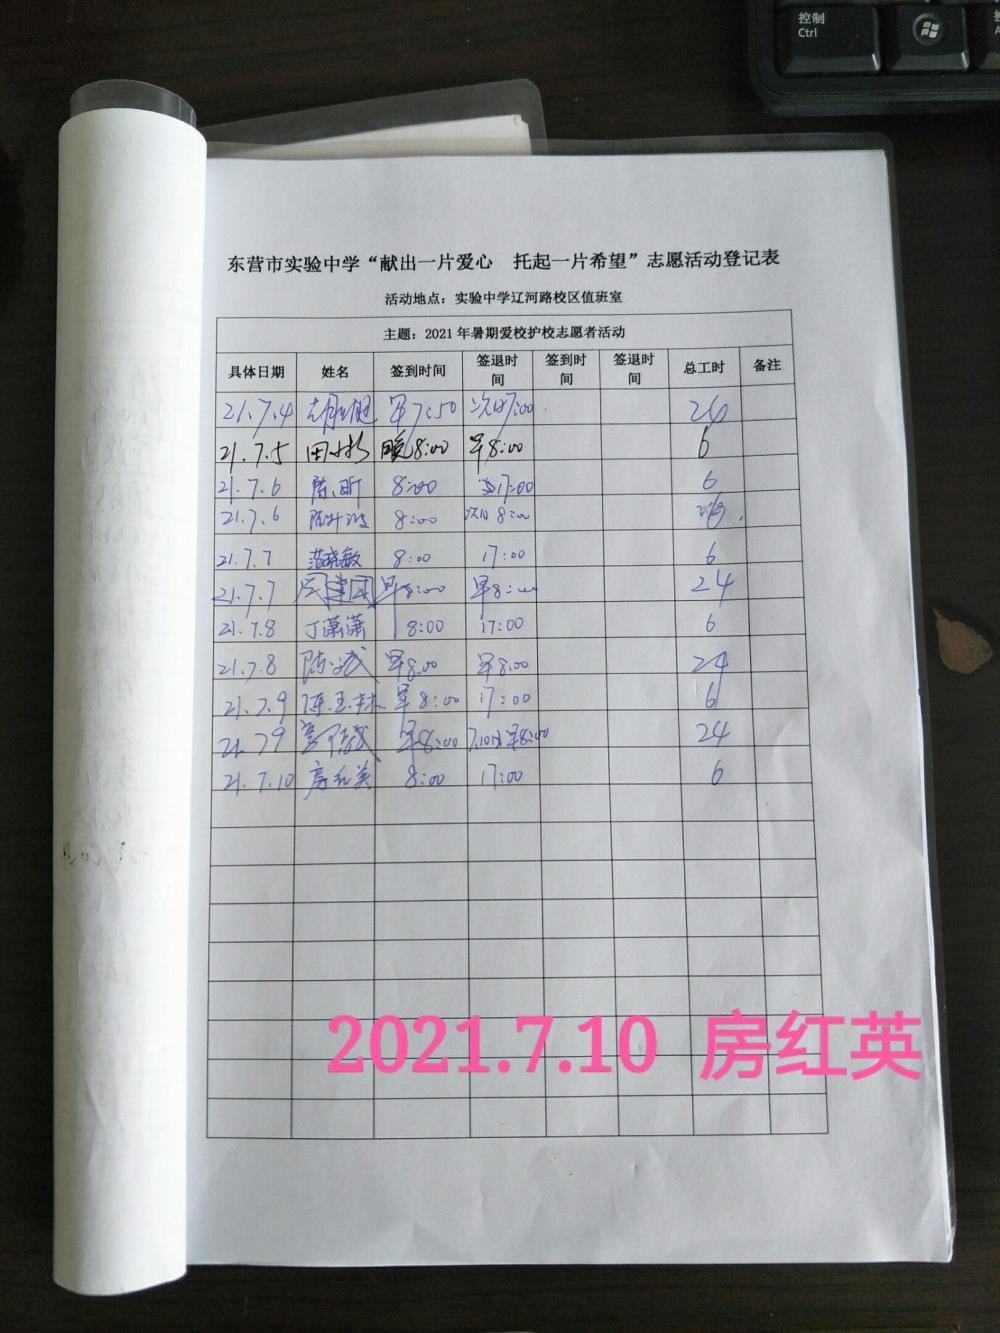 控制
Ctrl
东营市实验中学“献出一片爱心 托起一片希望”志愿活动登记表
活动地点：实验中学辽河路校区值班室
主题：2021年暑期爱校护校志愿者活动
具体日期 姓名 签到时间 签退时间 签到时间 签退时间 总工时 备注
21.7.4 早7:50 次日7:00
21.7.5 田 晚8:00 早8:00 6
21.7.6 陈昕 8:00 17:00 6
21.7.6 8:00 次日8:00
21.7.7 范晓敏 8:00 17:00 6
21.7.7 早8:00 早8:00 24
21.7.8 丁潇潇 8:00 17:00 6
21.7.8 陈 早8.00 早8.00 24
21.7.9 陈玉 早8:00 17:00 6
21.7.9 早8:00 7.10日早8:00 24
21.7.10 房红英 8:00 17:00 6
2021.7.10 房红英